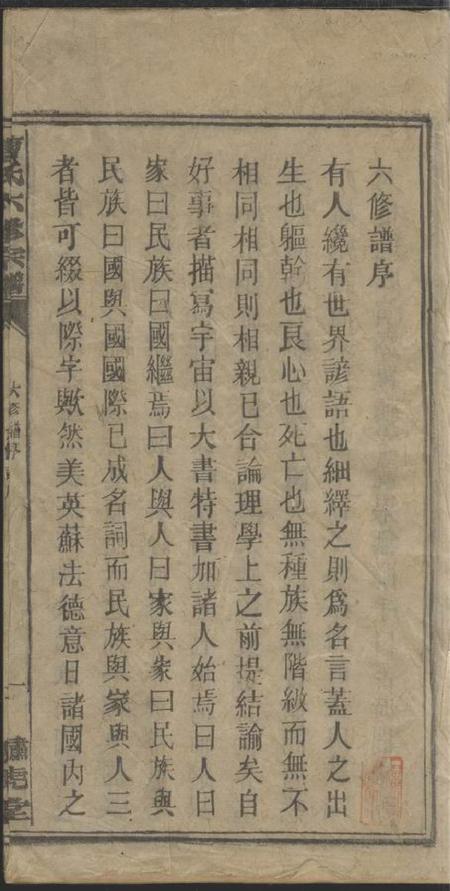 六修譜序
有人纔有世界諺語也細繹之則爲名言蓋人之出
生也軀幹也良心也死亡也無種族無階級而無不
相同相同則相親已合論理學上之前提結論矣自
好事者描寫宇宙以大書特書加諸人始焉曰人曰
家曰民族曰國繼焉曰人與人曰家與家曰民族與
民族曰國與國國際已成名詞而民族與家與人三
者皆可綴以際字歟然美英蘇法德意日諸國內之
氏六修宗譜
六修譜序
一